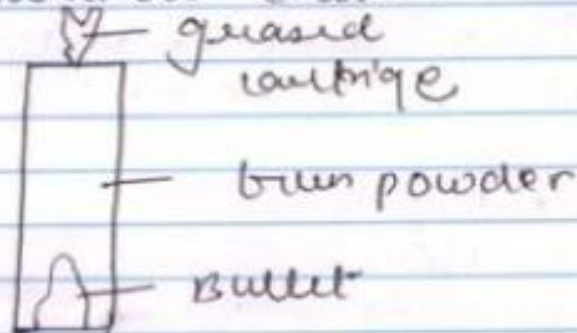 greased
cartrige
Gun powder
Bullet